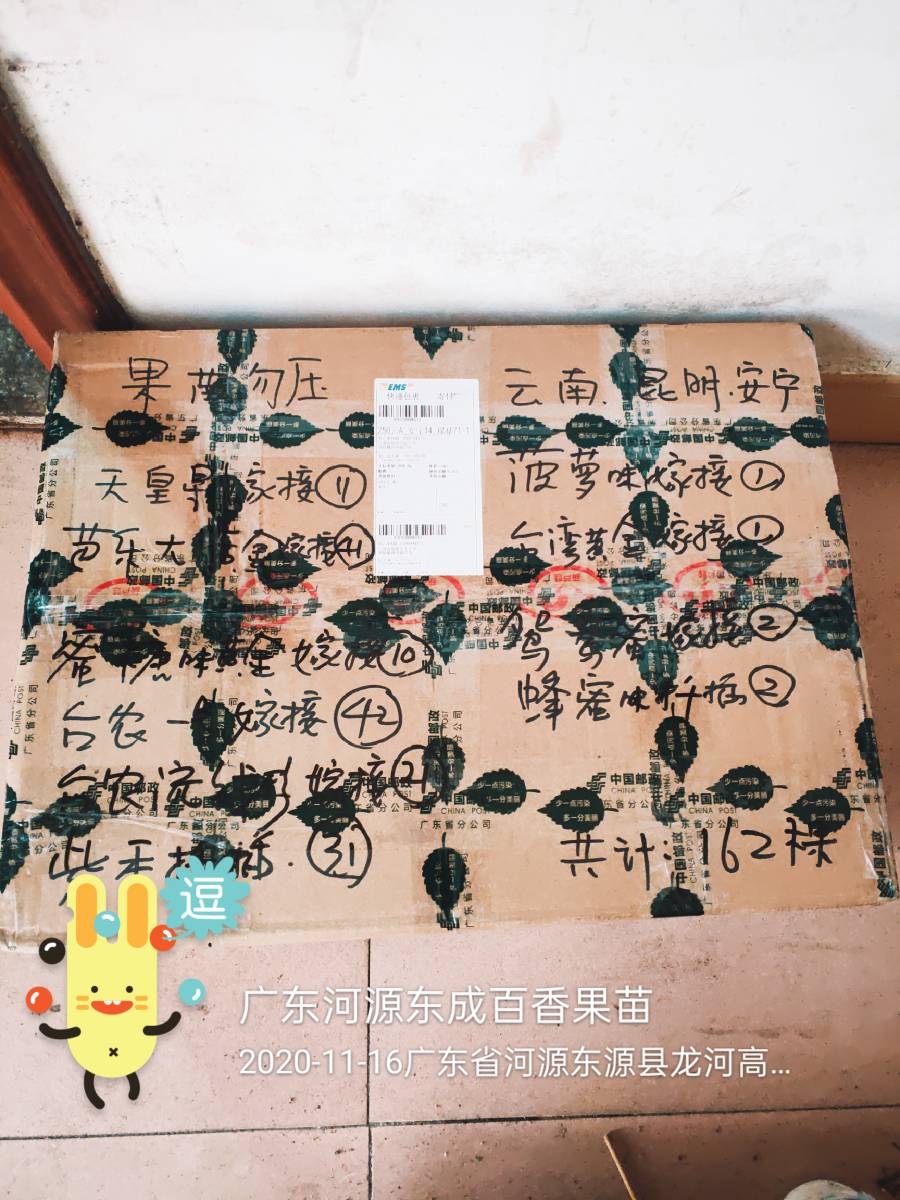 果苗勿压
云南.昆明.安宁
EMS
快递包裹
天皇果嫁接⑪
菠萝味嫁接①
芭乐大黄金嫁接㊶
台湾黄金嫁接①
蜜糖味黄金嫁接⑩
鸳鸯蜜嫁接②
台农一号嫁接㊷
蜂蜜味扦插②
台农 嫁接㉑
扦插.㉛
共计:162棵
中国邮政
CHINA POST
广东省分公司
少一点污染
多一分美丽
逗
广东河源东成百香果苗
2020-11-16广东省河源东源县龙河高...